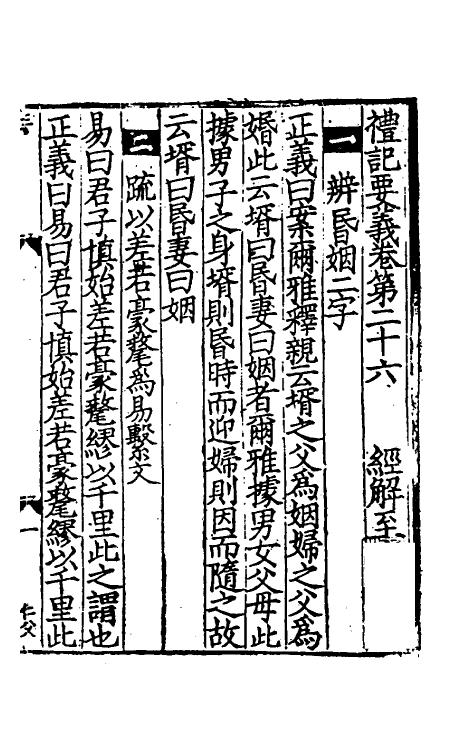 禮記要義卷第二十六 經解至
一 辨昬姻二字
正義曰案爾雅釋親云壻之父為姻婦之父為
婚此云壻曰昬妻曰姻者爾雅據男女父母此
據男子之身壻則昬時而迎婦則因而隨之故
云壻曰昬妻曰姻
二 疏以差若豪氂為易繫文
易曰君子慎始差若豪氂繆以千里此之謂也
正義曰易曰君子慎始差若豪氂繆以千里此
一